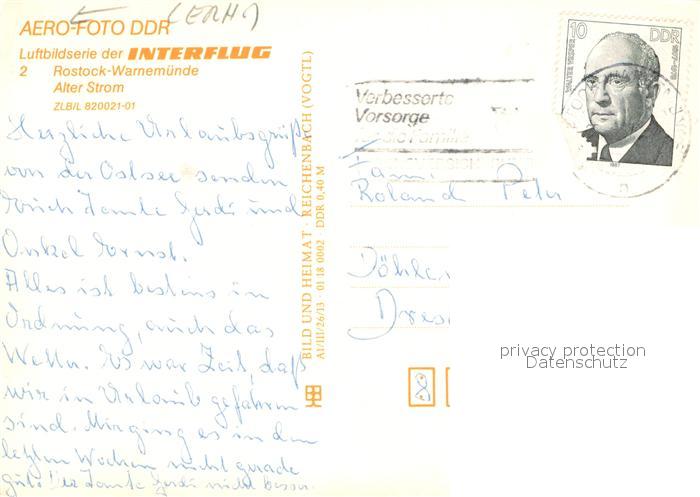 (ERH.)
AERO-FOTO DDR
Luftbildserie der INTERFLUG
2 Rostock-Warnemünde
Alter Strom
ZLB/L 820021-01
Herzliche Urlaubsgrüße
von der Ostsee senden
Euch Tante Gerdi und
Onkel Ernst.
Alles ist bestens in
Ordnung, auch das
Wetter. Es war Zeit, daß
wir in Urlaub gefahren
sind. Mir ging es in den
letzten Wochen nicht gerade
gut. Tante Gerdi nicht besser.
BILD UND HEIMAT · REICHENBACH (VOGTL)
A1/III/26/13 · 01 18 0002 · DDR 0,40 M
Verbesserte
Vorsorge
Familie
10 DDR
WALTER
1987
Fam.
Roland Peter
Döhlen
Dres
privacy protection
Datenschutz